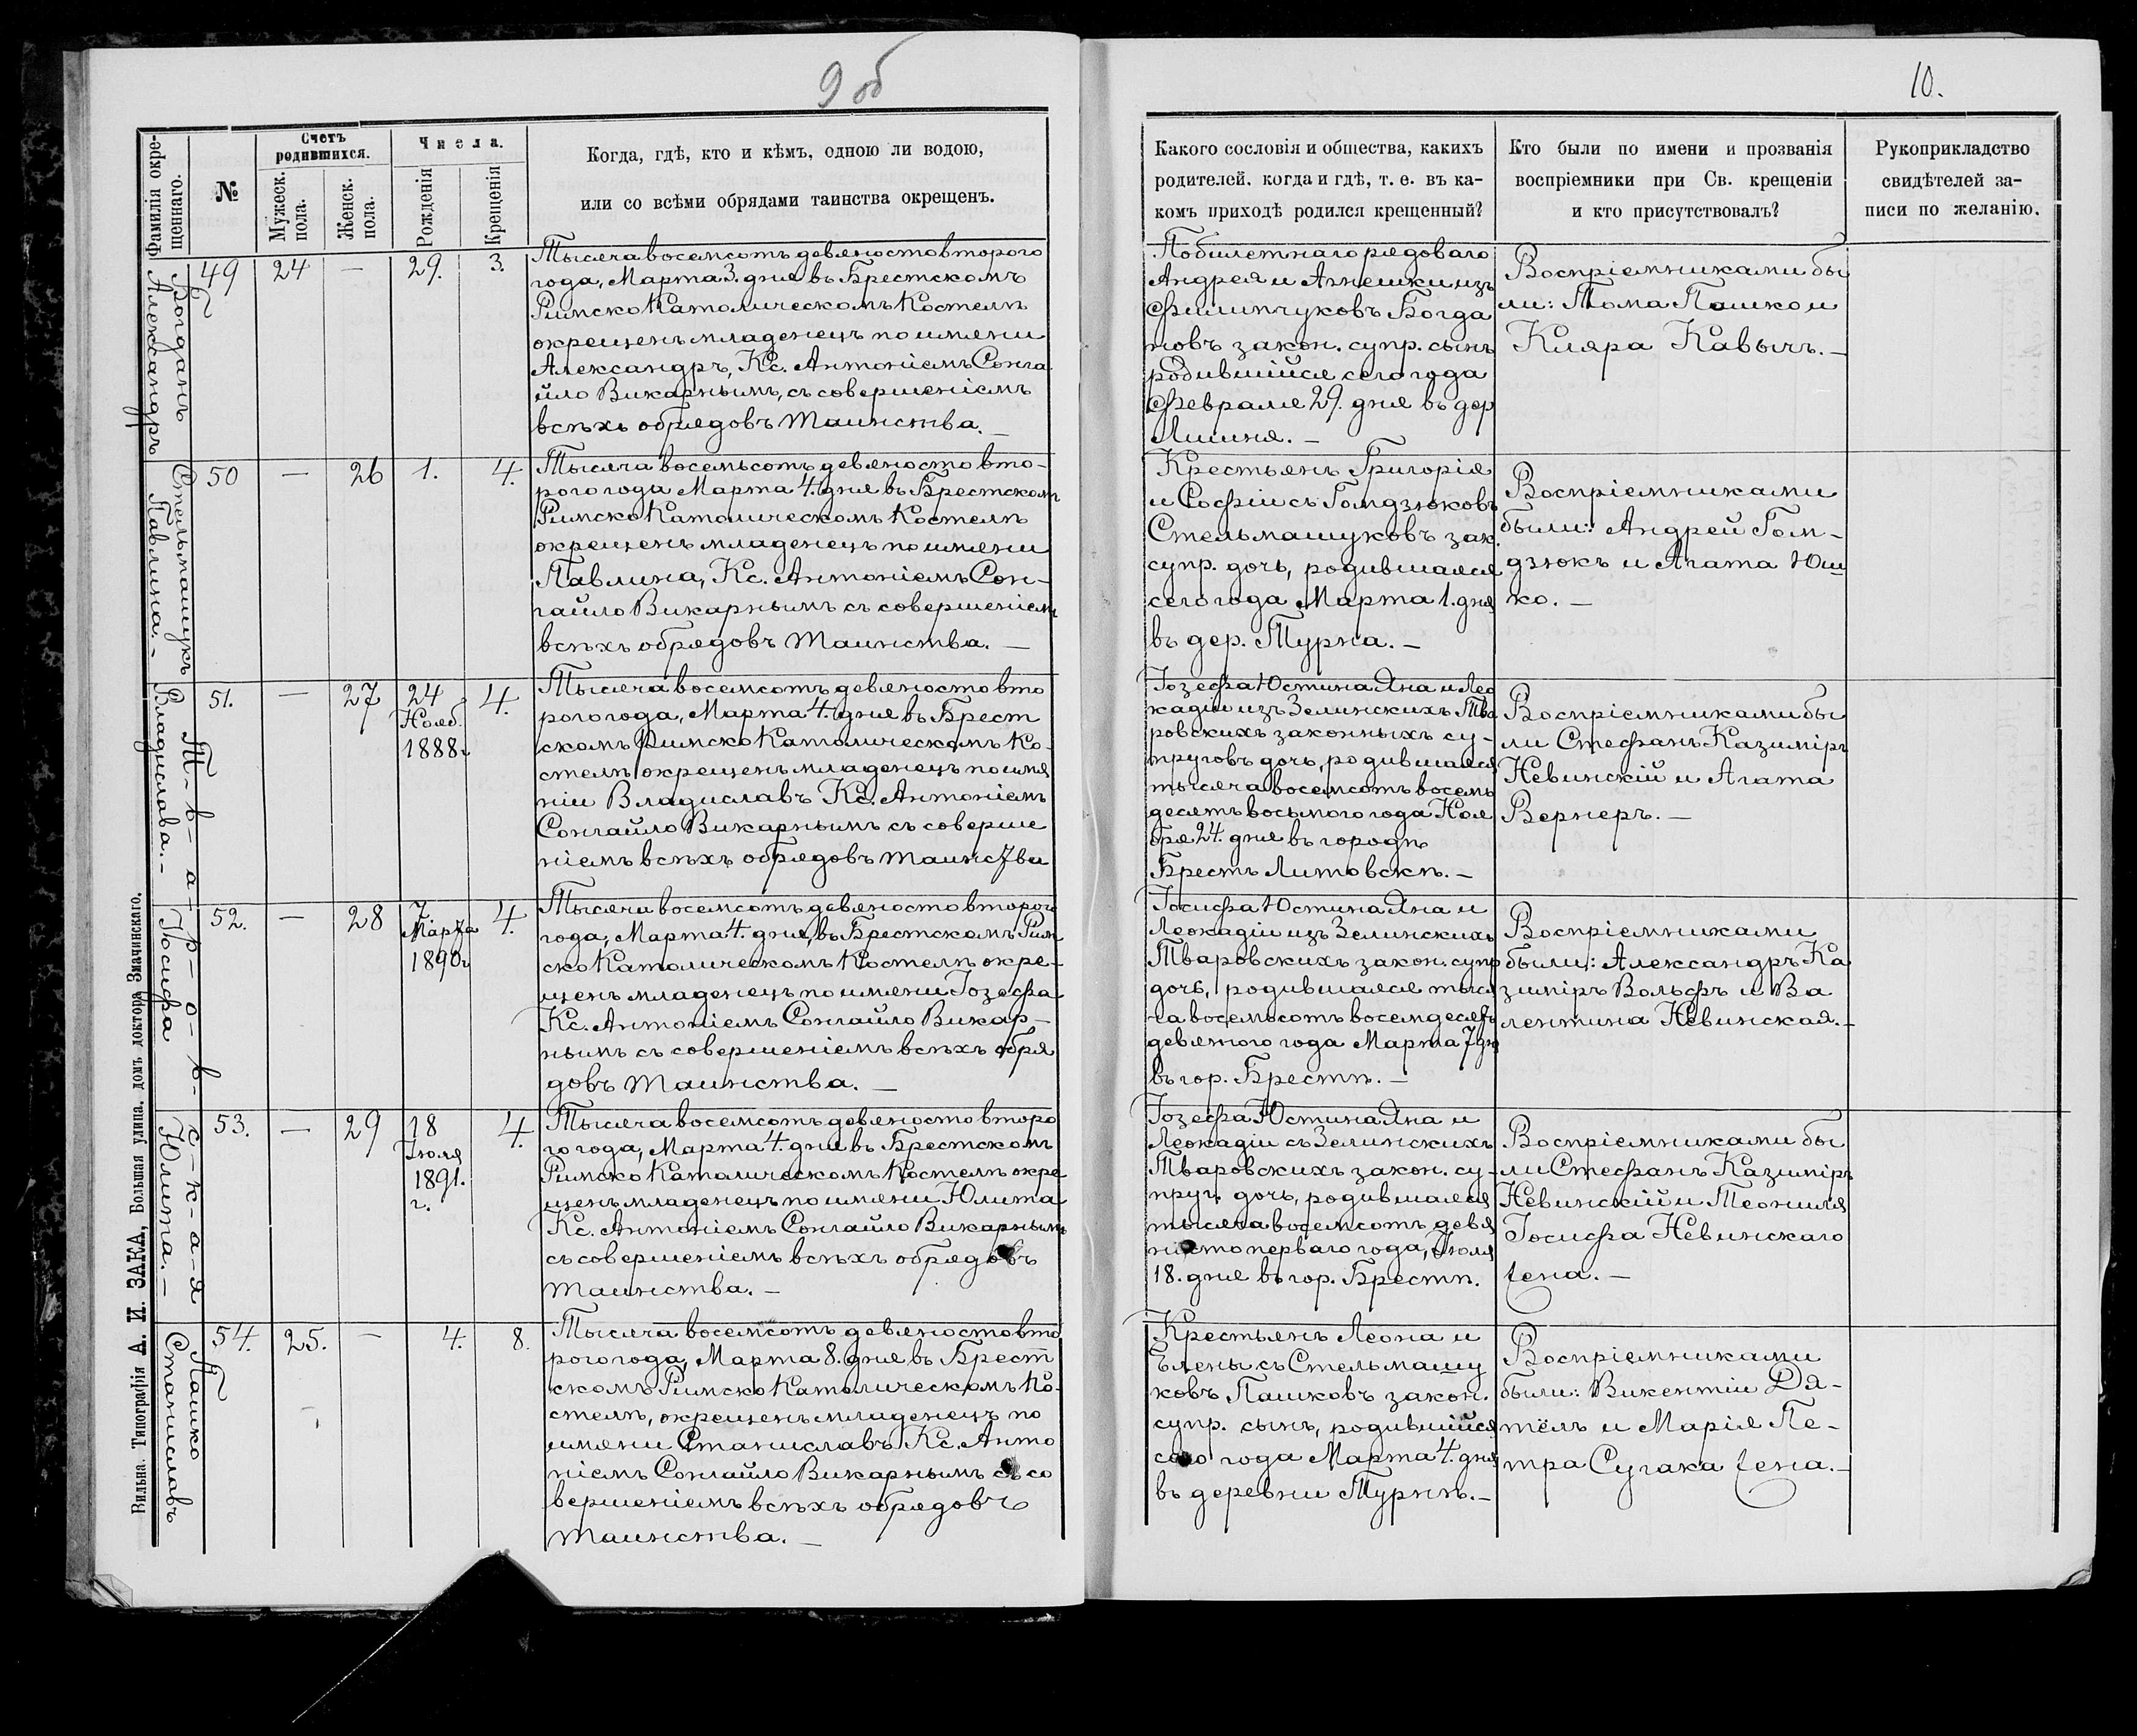 9 об
Фамилія окре-
щеннаго.
№
Счетъ
родившихся.
Мужеск.
пола.
Женск.
пола.
Числа.
Рожденія
Крещенія
Когда, гдѣ, кто и кѣмъ, одною ли водою,
или со всѣми обрядами таинства окрещенъ.
Богданъ
Александръ
49
24
—
29.
3.
Тысяча восемсотъ девяносто второго
года, Марта 3. дня въ Брестскомъ
Римско Католическомъ Костелѣ
окрещенъ младенецъ по имени
Александръ, Кс. Антоніемъ Сонга
йло Викарнымъ, съ совершеніемъ
всѣхъ обрядовъ таинства. —
Стельмашукъ
Павлина. -
50
—
26
1.
4.
Тысяча восемьсотъ девяносто вто-
рого года Марта 4. дня въ Брестскомъ
Римско Католическомъ Костелѣ
окрещенъ младенецъ по имени
Павлина, Кс. Антоніемъ Сон-
гайло Викарнымъ съ совершеніемъ
всѣхъ обрядовъ таинства. —
Т-в-а-р-о-в-с-к-а-я
Владислава. -
51.
—
27
24
Нояб.
1888г
4.
Тысяча восемсотъ девяносто вто
рого года, Марта 4. дня въ Брест
скомъ Римско Католическомъ Ко-
стелѣ окрещенъ младенецъ по имя
ніи Владиславъ Кс. Антоніемъ
Сонгайло Викарнымъ съ соверше
ніемъ всѣхъ обрядовъ таинства
Іосифа
52.
—
28
7
Марта
1890г
4.
Тысяча восемсотъ девяносто второго
года, Марта 4. дня, въ Брестскомъ Рим
ско Католическомъ Костелѣ окре-
щенъ младенецъ по имени Іозефа
Кс. Антоніемъ Сонгайло Викар-
нымъ съ совершеніемъ всѣхъ обря
довъ таинства. —
Юлита. —
53.
—
29
18
Іюля
1891.
г.
4.
Тысяча восемсотъ девяносто второ
го года, Марта 4. дня въ Брестскомъ
Римско Католическомъ Костелѣ окре
щенъ младенецъ по имени Юлита
Кс. Антоніемъ Сонгайло Викарнымъ
съ совершеніемъ всѣхъ обрядовъ
таинства. —
Пашко
Станиславъ
54.
25.
—
4.
8.
Тысяча восемсотъ девяносто вто
рого года, Марта 8. дня въ Брест
скомъ Римско Католическомъ Ко-
стелѣ, окрещенъ младенецъ по
имени Станиславъ Кс. Анто
ніемъ Сонгайло Викарнымъ съ со
вершеніемъ всѣхъ обрядовъ
таинства. —
Вильна. Типографія А. И. ЗАКА, Большая улица, домъ доктора Змачинскаго.
10.
Какого сословія и общества, какихъ
родителей. когда и гдѣ, т. е. въ ка-
комъ приходѣ родился крещенный?
Кто были по имени и прозванія
воспріемники при Св. крещеніи
и кто присутствовалъ?
Рукоприкладство
свидѣтелей за-
писи по желанію.
Побилетнаго рядоваго
Андрея и Агнешки изъ
Филипчуковъ Богда
новъ закон. супр. сынъ
родившійся сего года
Февраля 29. дня въ дер
Лишня. —
Воспріемниками бы
ли: Тома Пашко и
Кляра Кавычъ. —
Крестьянъ Григорія
и Софіи съ Гомдзюковъ
Стельмашуковъ зак.
супр. дочь, родившаяся
сего года Марта 1. дня
въ дер. Турна. —
Воспріемниками
были: Андрей Гом-
дзюкъ и Агата Юш
ко. —
Іозефа Юстина Яна и Лео
кадіи изъ Зелинскихъ Тва
ровскихъ законныхъ су-
пруговъ дочь, родившаяся
тысяча восемсотъ восемь
десятъ восьмого года Ноя
бря 24. дня въ городѣ
Брестъ Литовскѣ. —
Воспріемниками бы
ли Стефанъ Казиміръ
Невинскій и Агата
Вернеръ. —
Іосифа Юстина Яна и
Леокадіи изъ Зелинскихъ
Тваровскихъ закон. супр
дочь, родившаяся тыся
ча восемьсотъ восемдесятъ
девятого года Марта 7 дня
въ гор. Брестѣ. —
Воспріемниками
были: Александръ Ка
зиміръ Вольфъ и Ва
лентина Невинская. —
Іозефа Юстина Яна и
Леокадіи съ Зелинскихъ
Тваровскихъ закон. су-
пруг. дочь, родившаяся
тысяча восемсотъ девя
носто перваго года, Іюля
18. дня въ гор. Брестѣ.
Воспріемниками бы
ли Стефанъ Казиміръ
Невинскій и Теофиля
Іосифа Невинскаго
жена. —
Крестьянъ Леона и
Елены съ Стельмашу
ковъ Пашковъ закон.
супр. сынъ, родившійся
сего года Марта 4. дня
въ деревни Турнѣ. —
Воспріемниками
были: Викентіи Дя-
тёлъ и Марія Пе-
тра Сугака жена. —